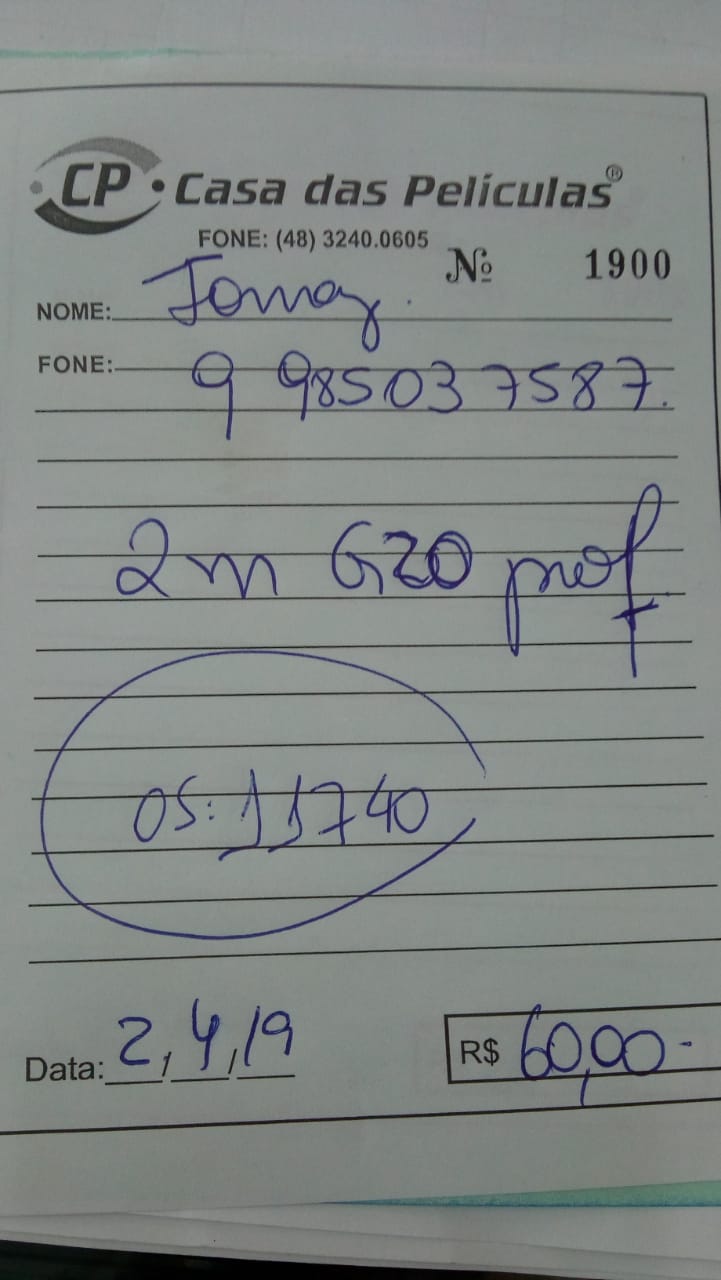 CP • Casa das Películas®
FONE: (48) 3240.0605
Nº 1900
NOME: Tomaz.
FONE: 9 985037587.
2m G20 prof
OS: 11740
Data: 2/4/19
R$ 60,00-